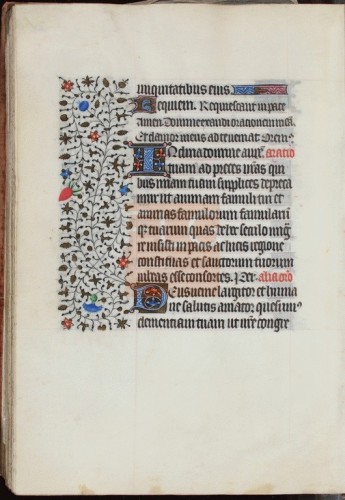 iniquitatibus eius
Requiem. Requiescant in pace
amen Domine exaudi orationem mea
Et clamor meus ad te veniat Orem
Inclina domine aure oratio
tuam ad preces nras qui
bus miam tuam supplices depreca
mur ut animam famuli tui et
animas famulorum famularu
qz tuarum quas de hoc seculo migra
re iussisti in pacis ac lucis regione
constituas et sanctorum tuorum
iubeas esse consortes. Per. alia oro
Deus venie largitor et huma
ne salutis amator quesum
clementiam tuam ut nre congre